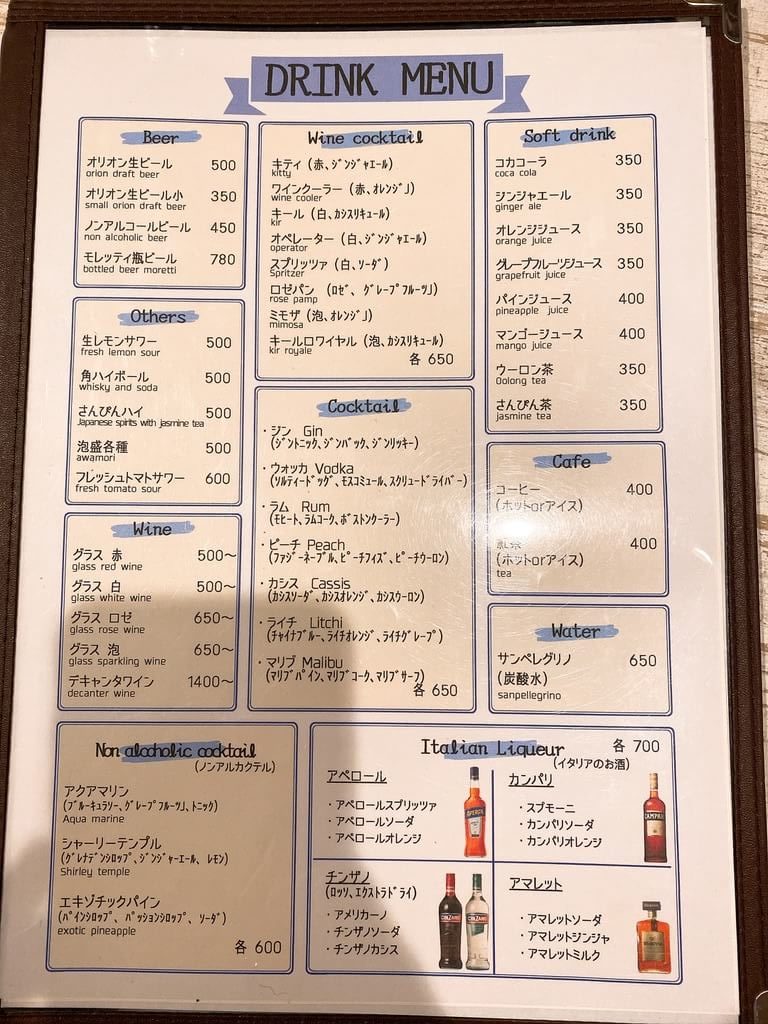 DRINK MENU
Beer
オリオン生ビール 500
orion draft beer
オリオン生ビール小 350
small orion draft beer
ノンアルコールビール 450
non alcoholic beer
モレッティ瓶ビール 780
bottled beer moretti
Others
生レモンサワー 500
fresh lemon sour
角ハイボール 500
whisky and soda
さんぴんハイ 500
Japanese spirits with jasmine tea
泡盛各種 500
awamori
フレッシュトマトサワー 600
fresh tomato sour
Wine
グラス 赤 500～
glass red wine
グラス 白 500～
glass white wine
グラス ロゼ 650～
glass rose wine
グラス 泡 650～
glass sparkling wine
デキャンタワイン 1400～
decanter wine
Wine cocktail
キティ（赤、ジンジャエール）
kitty
ワインクーラー（赤、オレンジJ）
wine cooler
キール（白、カシスリキュール）
kir
オペレーター（白、ジンジャエール）
operator
スプリッツァ（白、ソーダ）
Spritzer
ロゼパン （ロゼ、グレープフルーツJ）
rose pamp
ミモザ（泡、オレンジJ）
mimosa
キールロワイヤル（泡、カシスリキュール）
kir royale
各 650
Cocktail
・ジン Gin
（ジントニック、ジンバック、ジンリッキー）
・ウォッカ Vodka
（ソルティードッグ、モスコミュール、スクリュードライバー）
・ラム Rum
（モヒート、ラムコーク、ボストンクーラー）
・ピーチ Peach
（ファジーネーブル、ピーチフィズ、ピーチウーロン）
・カシス Cassis
（カシスソーダ、カシスオレンジ、カシスウーロン）
・ライチ Litchi
（チャイナブルー、ライチオレンジ、ライチグレープ）
・マリブ Malibu
（マリブパイン、マリブコーク、マリブサーフ）
各 650
Soft drink
コカコーラ 350
coca cola
ジンジャエール 350
ginger ale
オレンジジュース 350
orange juice
グレープフルーツジュース 350
grapefruit juice
パインジュース 400
pineapple juice
マンゴージュース 400
mango juice
ウーロン茶 350
Oolong tea
さんぴん茶 350
jasmine tea
Cafe
コーヒー 400
（ホットorアイス）
紅茶 400
（ホットorアイス）
tea
Water
サンペレグリノ 650
（炭酸水）
sanpellegrino
Non alcoholic cocktail
（ノンアルカクテル）
アクアマリン
（ブルーキュラソー、グレープフルーツJ、トニック）
Aqua marine
シャーリーテンプル
（グレナデンシロップ、ジンジャーエール、レモン）
Shirley temple
エキゾチックパイン
（パインシロップ、パッションシロップ、ソーダ）
exotic pineapple
各 600
Italian Liqueur 各 700
（イタリアのお酒）
アペロール
・アペロールスプリッツァ
・アペロールソーダ
・アペロールオレンジ
APEROL
カンパリ
・スプモーニ
・カンパリソーダ
・カンパリオレンジ
CAMPARI
チンザノ
（ロッソ、エクストラドライ）
・アメリカーノ
・チンザノソーダ
・チンザノカシス
CINZANO
CINZANO
アマレット
・アマレットソーダ
・アマレットジンジャ
・アマレットミルク